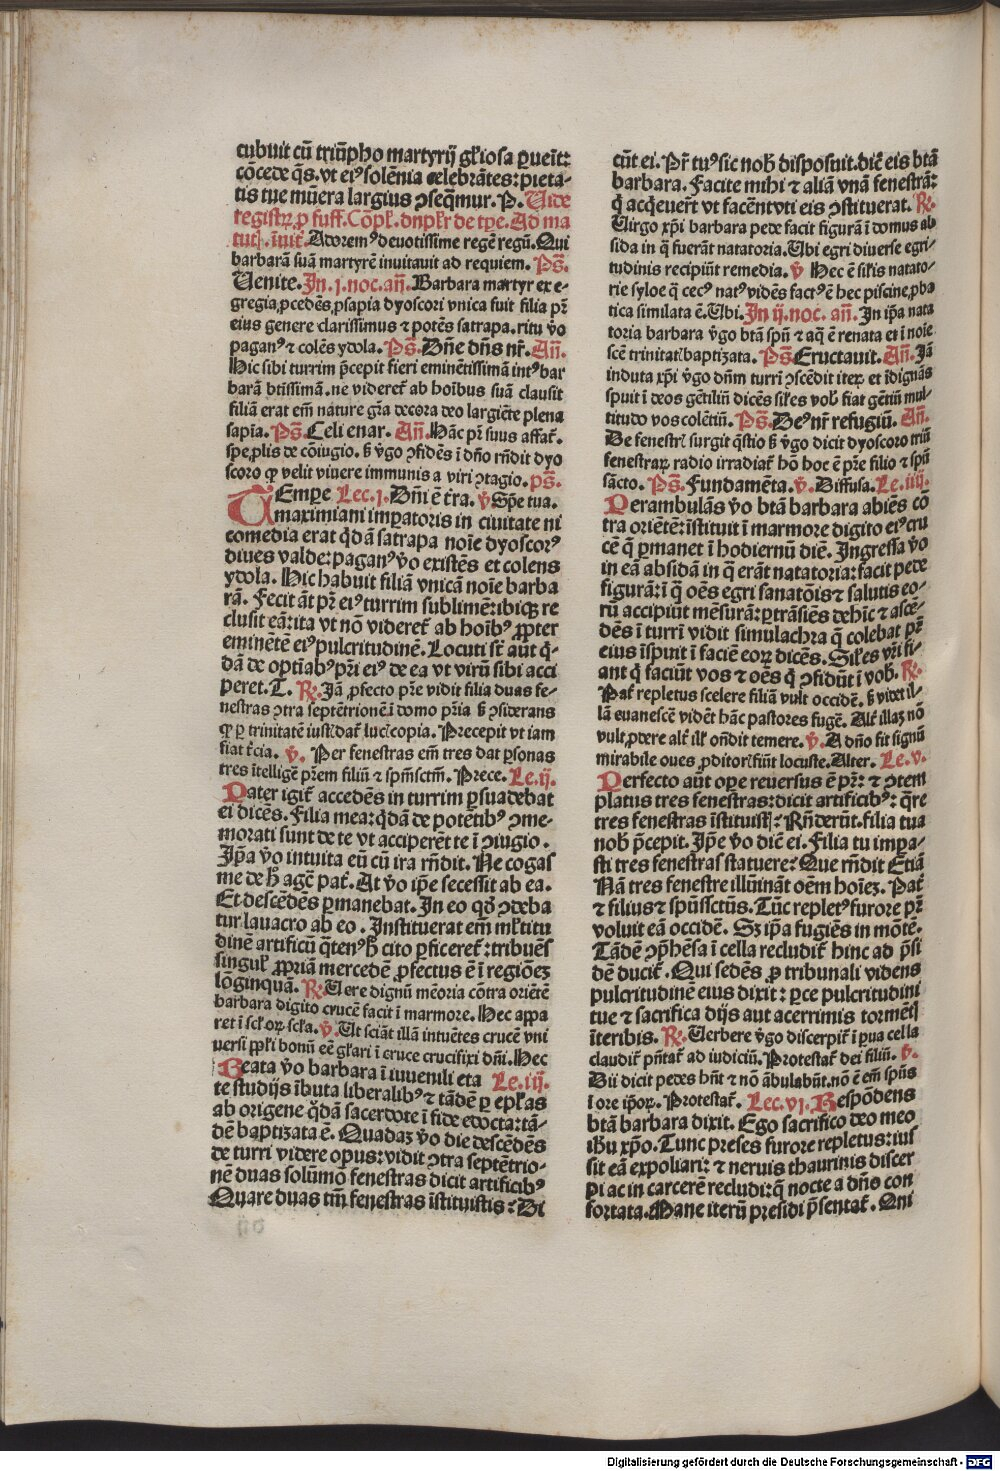 cubuit cū triūpho martyrij gl'iosa ꝑueīt:
cōcede q̄s. vt eiꝰ solēnia celebrātes: pieta-
tis tue mūera largius ꝯseq̄mur. P. Uide
registrꝝ ꝓ suff. Cōpl'. dnplr̄ de tp̄e. Ad ma
tut. īuit. Adoremꝰ deuotissime regē regū. Qui
barbarā suā martyrē inuitauit ad requiem. Ps̄.
Uenite. In .j. noc. añ. Barbara martyr ex e-
gregia ꝓcedēs ꝓsapia dyoscori vnica fuit filia pr̄
eius genere clarissimus ⁊ potēs satrapa. ritu v̄o
paganꝰ ⁊ colēs ydola. Ps̄. Dn̄e dn̄s nr̄. Añ.
Hic sibi turrim p̄cepit fieri eminētissimā intꝰ bar
barā btissimā. ne videret' ab hoībus suā clausit
filiā erat em̄ nature gr̄a decora deo largiēte plena
sapīa. Ps̄. Celi enar. Añ. Hāc pr̄ suus affat'.
spe ꝓlis de cōiugio. s̄ v̄go ꝯfidēs ī dn̄o rn̄dit dyo
scoro ꝙ velit viuere immunis a viri ꝯtagio. ps̄.
TEmpe Lec. j. Dn̄i ē t'ra. v̄ Spe tua.
maximiani imꝑatoris in ciuitate ni
comedia erat q̄dā satrapa noīe dyoscorꝰ
diues valde: paganꝰ v̄o existēs et colens
ydola. Hic habuit filiā vnicā noīe barba
rā. Fecit āt pr̄ eiꝰ turrim sublimē: ibiqꝫ re
clusit eā: ita vt nō videret' ab hoībꝰ ꝓpter
eminētē eiꝰ pulcritudinē. Locuti sr̄ aūt q̄-
dā de optīabꝰ pr̄i eiꝰ de ea vt virū sibi acci
peret. T. R̄. Jā ꝓfecto pr̄e vidit filia duas fe-
nestras ꝯtra septētrionē ī domo pr̄ia s̄ ꝯsiderans
ꝙ ꝑ trinitatē iustꝭ dat' lucꝭ copia. Precepit vt iam
fiat t'cia. v̄. Per fenestras em̄ tres dat ꝑsonas
tres ītelligē pr̄em filiū ⁊ spm̄sctm̄. Prece. Le. ij.
Pater igit' accedēs in turrim ꝑsuadebat
ei dicēs. Filia mea: q̄dā de potētibꝰ ꝯme-
morati sunt de te vt acciperēt te ī ꝯiugio.
Ip̄a v̄o intuita eū cū ira rn̄dit. Ne cogas
me de h̄ agē pat'. At v̄o ip̄e secessit ab ea.
Et descēdēs ꝑmanebat. In eo qd̄ ꝯdeba
tur lauacro ab eo. Instituerat em̄ ml'titu
dinē artificū q̄tenꝰ h̄ cito ꝑficeret': tribuēs
singul' ꝓpriā mercedē ꝓfectus ē ī regiōeꝫ
lōginquā. R̄. Uere dignū mēoria cōtra oriētē
barbara digito crucē facit ī marmore. Hec appa
ret ī scl'oꝝ scl'a. v̄. Ut sciāt illā intuētes crucē vni
uersi ppl'i bonū eē gl'ari ī cruce crucifixi dn̄i. Hec
Beata v̄o barbara ī iuuenili eta Le. iij.
te studijs ībuta liberalibꝰ ⁊ tādē ꝑ epl'as
ab origene q̄dā sacerdote ī fide edocta: tā-
dē baptizata ē. Quadaꝫ v̄o die descēdēs
de turri videre opus: vidit ꝯtra septētrio-
nē duas solūmō fenestras dicit artificibꝰ
Quare duas tm̄ fenestras īstituistis: Di
cūt ei. Pr̄ tuꝰ sic nob' disposuit. dic̄ eis btā
barbara. Facite mihi ⁊ aliā vnā fenestrā:
q̄ acq̄euer̄t vt facēnt vti eis ꝯstituerat. R̄.
Uirgo xp̄i barbara pede facit figurā ī domus ab
sida in q̄ fuerāt natatoria. Ubi egri diuerse egri-
tudinis recipiūt remedia. v̄ Hec ē sil'is natato-
rie syloe q̄ cecꝰ natꝰ vidēs factꝰ ē hec piscine ꝓba
tica similata ē. Ubi. In ij. noc. añ. In ip̄a nata
toria barbara v̄go btā spn̄ ⁊ aq̄ ē renata ei ī noīe
scē trinitatꝭ baptizata. Ps̄ Eructauit. Añ. Jā
induta xp̄i v̄go dn̄m turrī ꝯscēdit iteꝝ et īdignās
spuit ī deos gētiliū dicēs sil'es vob' fiat gētiū mul-
titudo vos colētiū. Ps̄. Deꝰ nr̄ refugiū. Añ.
De fenestrꝭ surgit q̄stio s̄ v̄go dicit dyoscoro triū
fenestraꝝ radio irradiat' hō hoc ē pr̄e filio ⁊ spū
sācto. Ps̄. Fundamēta. v̄. Diffusa. Le. iiij.
Perambulās v̄o btā barbara abiēs cō
tra oriētē: īstituit ī marmore digito eiꝰ cru
cē q̄ ꝑmanet ī hodiernū diē. Ingressa v̄o
in eā absidā in q̄ erāt natatoria: facit pede
figurā: ī q̄ oēs egri sanatōis ⁊ salutis eo-
rū accipiūt mēsurā: ꝑtrāsiēs dehīc ⁊ ascē-
dēs ī turrī vidit simulachra q̄ colebat pr̄
eius īspuit ī faciē eoꝝ dicēs. Sil'es vr̄i fi-
ant q̄ faciūt vos ⁊ oēs q̄ ꝯfidūt ī vob'. R̄.
Pat' repletus scelere filiā vult occidē. s̄ videt il-
lā euanescē vidēt hāc pastores fugē. Alt' illaꝫ nō
vult ꝓdere alt' ill' on̄dit temere. v̄. A dn̄o fit signū
mirabile oues ꝓditorꝭ fiūt locuste. Alter. Le. v.
Perfecto aūt oꝑe reuersus ē pr̄: ⁊ ꝯtem
platus tres fenestras: dicit artificibꝰ: q̄re
tres fenestras īstituistꝭ: Rn̄derūt. filia tua
nob' p̄cepit. Ip̄e v̄o dic̄ ei. Filia tu impa-
sti tres fenestras statuere: Que rn̄dit Etiā
Nā tres fenestre illūināt oēm hoīeꝫ. Pat'
⁊ filius ⁊ spūssctūs. Tūc repletꝰ furore pr̄
voluit eā occidē. Sꝫ ip̄a fugiēs in mōtē.
Tādē ꝯp̄hēsa ī cella recludit' hinc ad p̄si
dē ducit'. Qui sedēs ꝓ tribunali videns
pulcritudinē eius dixit: ꝑce pulcritudini
tue ⁊ sacrifica dijs aut acerrimis tormētꝭ
īteribis. R̄. Uerbere v̄go discerpit' ī ꝑua cella
claudit' pn̄tat' ad iudiciū. Protestat' dei filiū. v̄.
Dii dicit pedes hn̄t ⁊ nō ābulabūt. nō ē em̄ spūs
ī ore ip̄oꝝ. Protestat'. Lec. vj. Respōdens
btā barbara dixit. Ego sacrifico deo meo
ihū xp̄o. Tunc preses furore repletus: ius
sit eā expoliari: ⁊ neruis thaurinis discer
pi ac in carcerē recludi: q̄ nocte a dn̄s con
fortata. Mane iterū presidi p̄sentat'. Qui
Digitalisierung gefördert durch die Deutsche Forschungsgemeinschaft - DFG